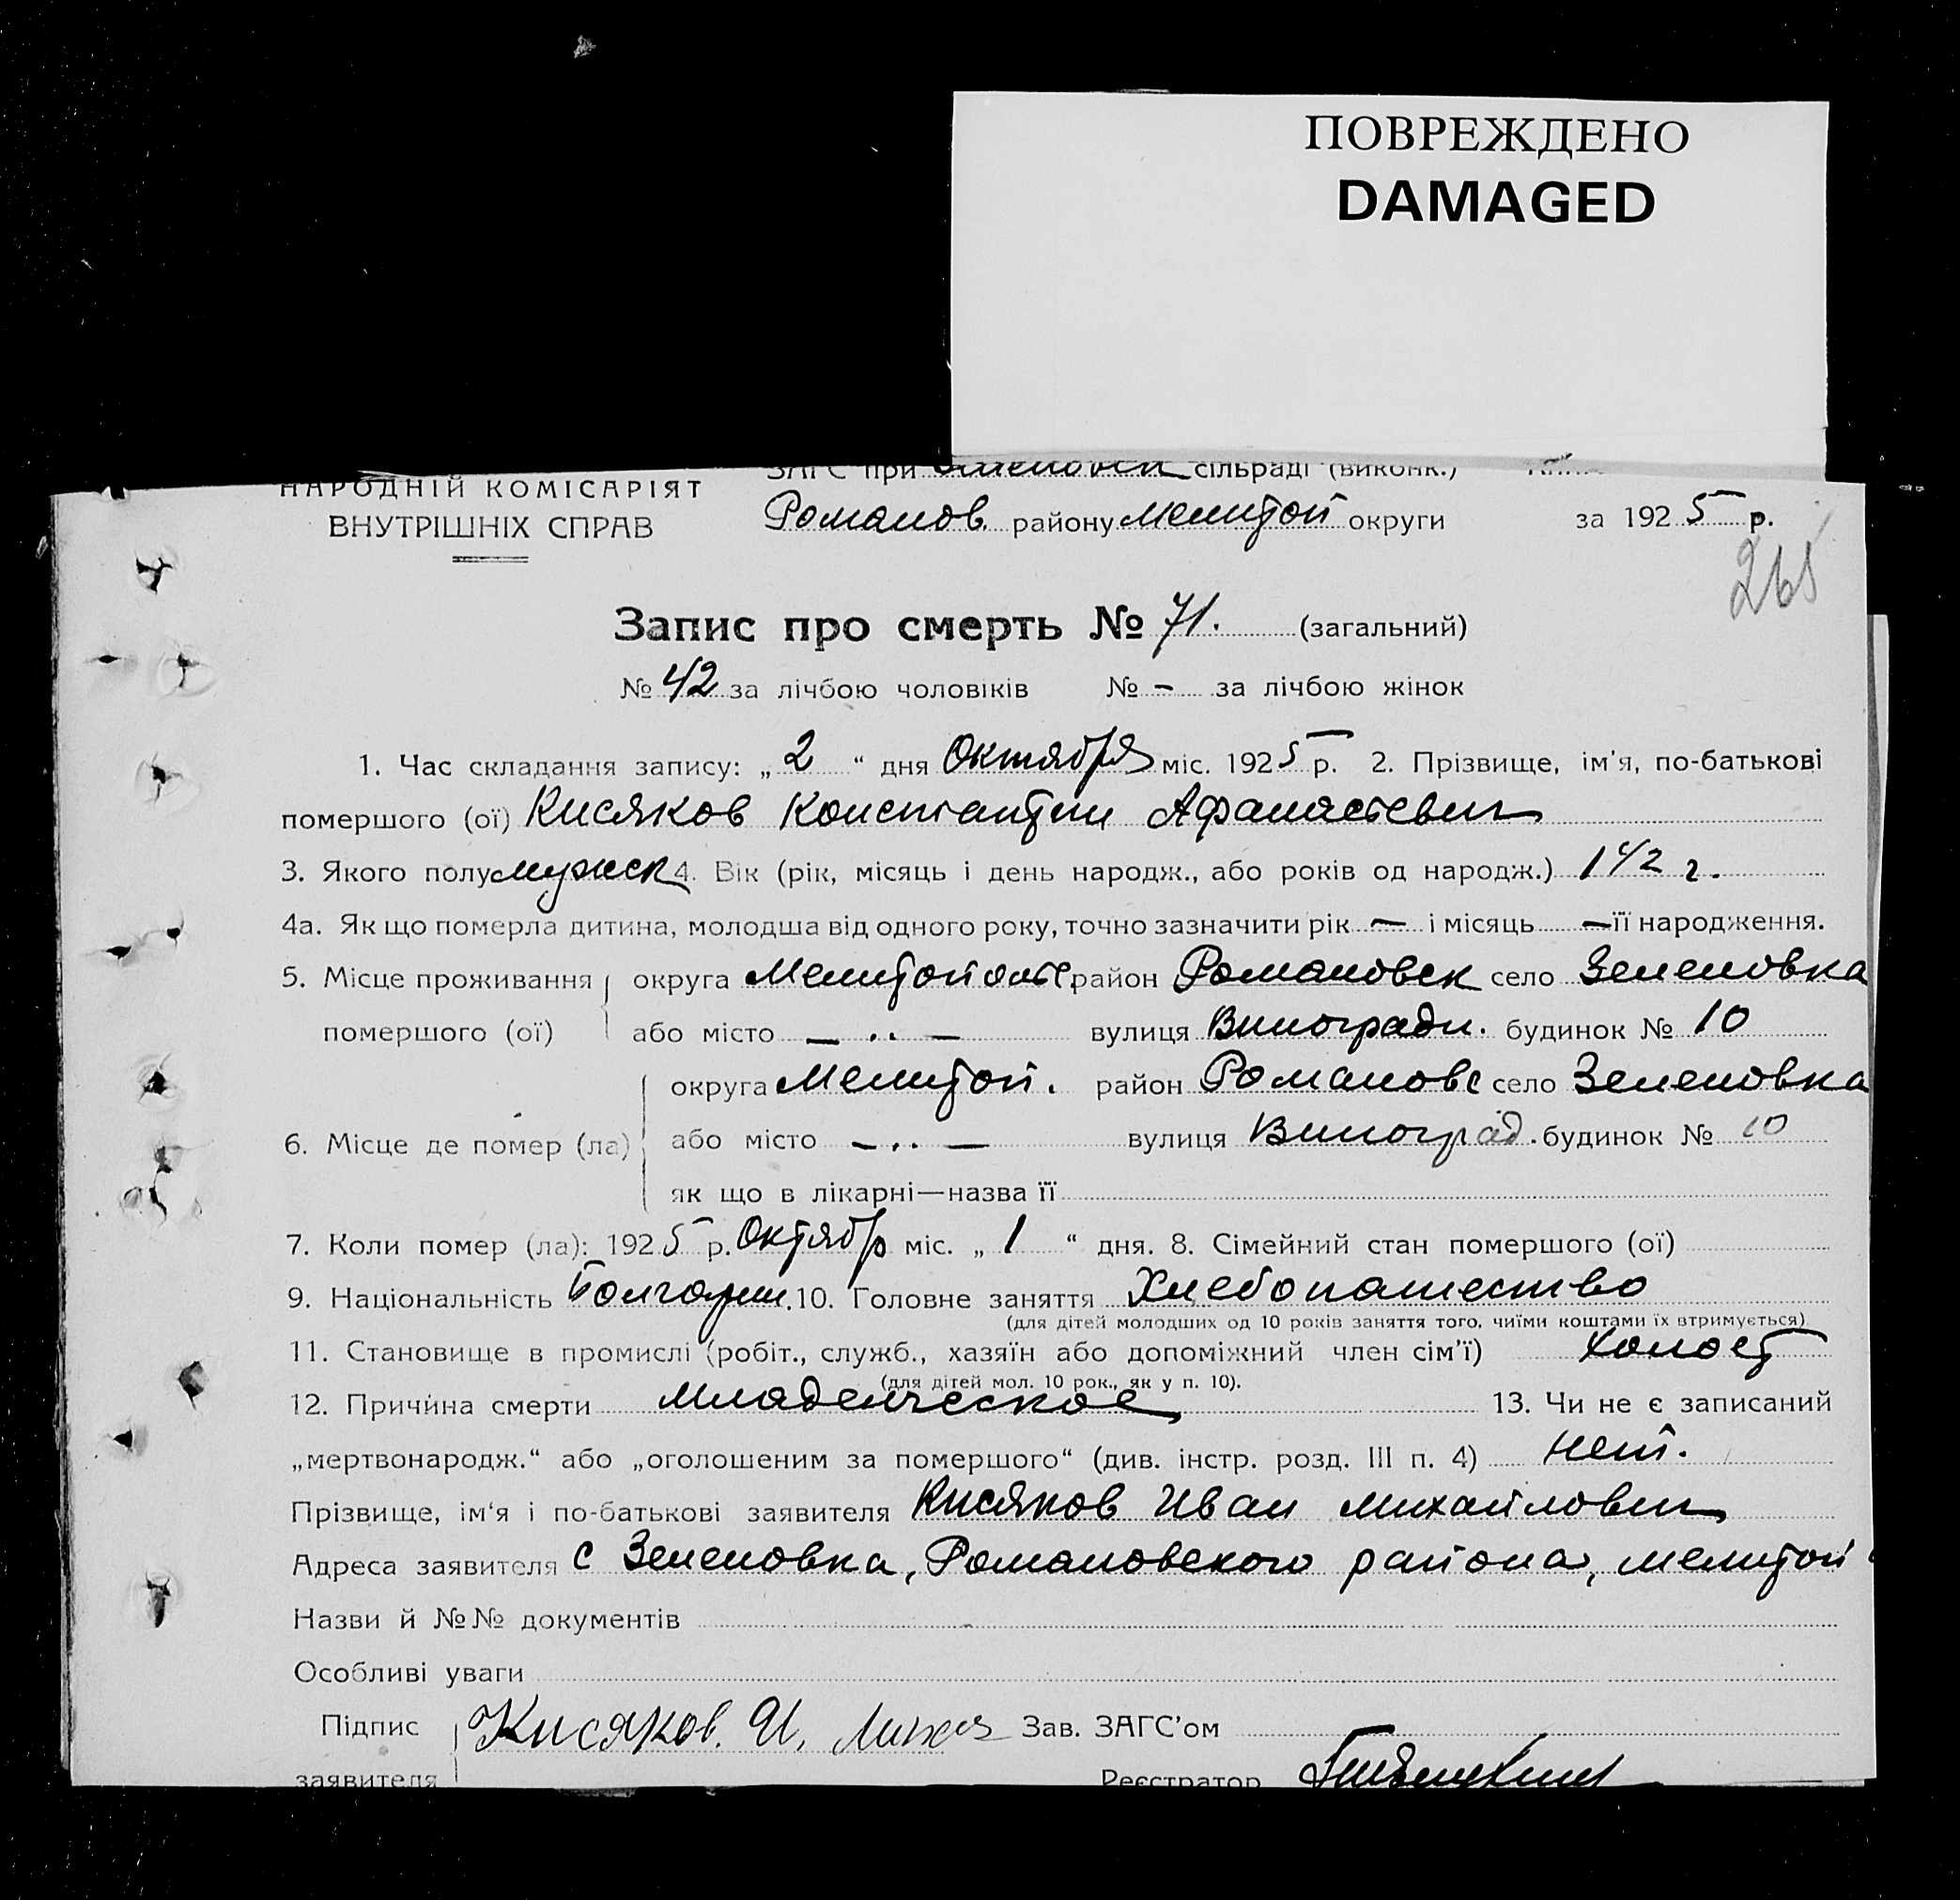 ПОВРЕЖДЕНО
DAMAGED
ЗАГС при сільраді (виконк.)
НАРОДНІЙ КОМІСАРІЯТ
ВНУТРІШНІХ СПРАВ
Романов. району Мелитоп округи за 1925 р.
265
Запис про смерть № 71. (загальний)
№ 42 за лічбою чоловіків № - за лічбою жінок
1. Час складання запису: „2“ дня Октября міс. 1925 р. 2. Прізвище, ім'я, по-батькові
помершого (ої) Кисяков Константин Афанасьевич
3. Якого полу мужск 4. Вік (рік, місяць і день народж., або років од народж.) 1 1/2 г.
4а. Як що померла дитина, молодша від одного року, точно зазначити рік — і місяць — її народження.
5. Місце проживання округа Мелитопольс район Романовск село Зеленовка
помершого (ої) або місто — .. — вулиця Виноградн. будинок № 10
округа Мелитоп. район Романовс село Зеленовка
6. Місце де помер (ла) або місто — .. — вулиця Виноград. будинок № 10
як що в лікарні—назва її
7. Коли помер (ла): 1925 р. Октябр міс. „1“ дня. 8. Сімейний стан помершого (ої)
9. Національність Болгарин. 10. Головне заняття Хлебопашество
(для дітей молодших од 10 років заняття того, чиїми коштами їх втримується)
11. Становище в промислі (робіт., служб., хазяїн або допоміжний член сім'ї) холост
(для дітей мол. 10 рок., як у п. 10).
12. Причина смерти Младенческое 13. Чи не є записаний
„мертвонародж.“ або „оголошеним за помершого“ (див. інстр. розд. III п. 4) нет.
Прізвище, ім'я і по-батькові заявителя Кисяков Иван Михайлович
Адреса заявителя с Зеленовка, Романовского района, Мелитоп
Назви й №№ документів
Особливі уваги
Підпис Кисяков. И, Зав. ЗАГС'ом
заявителя Реєстратор